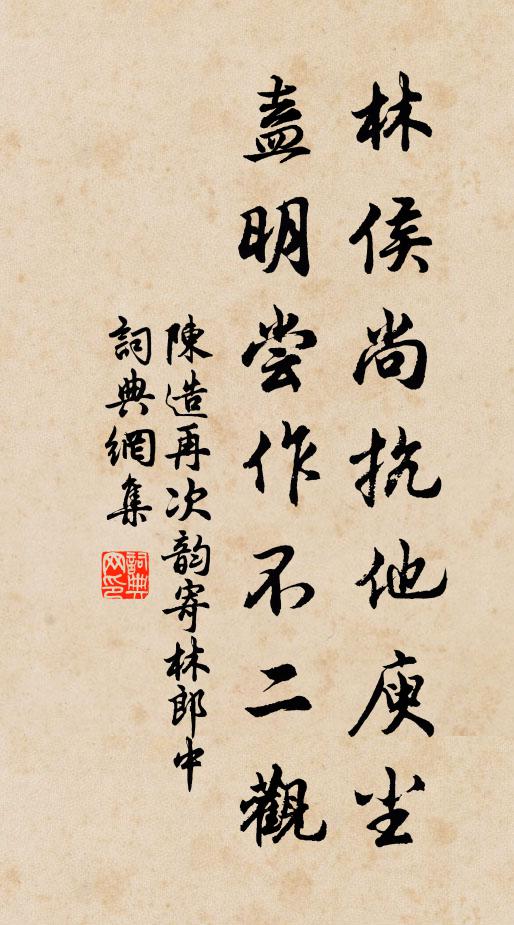 林侯尚抗他庾尘
盍明尝作不二觀
陳造再次韵寄林郎中
詞典網集
詞典网印